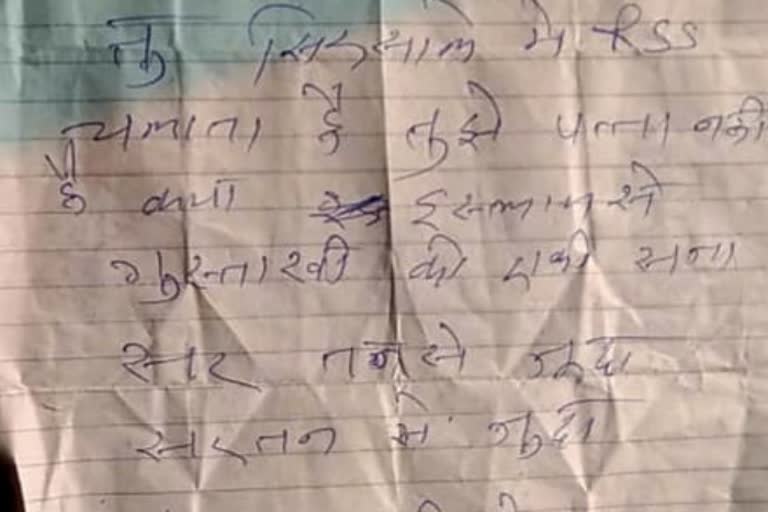 तु सिरसाले मे RSS
चलाता है तुझे पत्ता नही
है क्या इस्लाम से
गुस्ताखी की एकी सजा
सर तन से जुदा
सर तन से जुदा